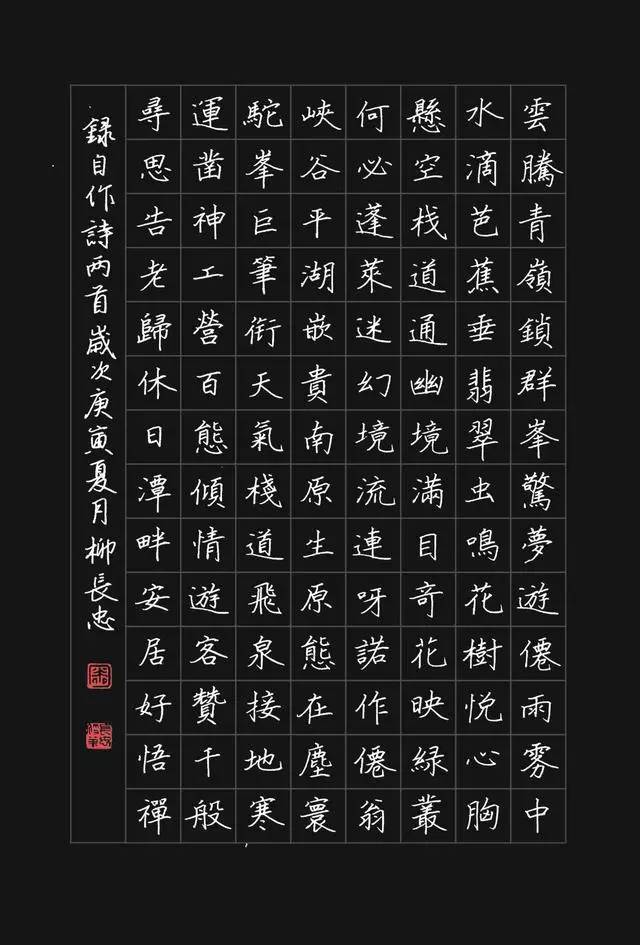 雲騰青嶺鎖群峯驚夢遊僊雨雾中
水滴芭蕉垂翡翠虫鳴花樹悦心胸
懸空栈道通幽境滿目奇花映緑叢
何必蓬萊迷幻境流連呀諾作僊翁
峽谷平湖嵌貴南原生原態在塵寰
駝峯巨筆銜天氣棧道飛泉接地寒
運凿神工營百態傾情遊客贊千般
尋思告老歸休日潭畔安居好悟禪
録自作詩两首嵗次庚寅夏月柳長忠